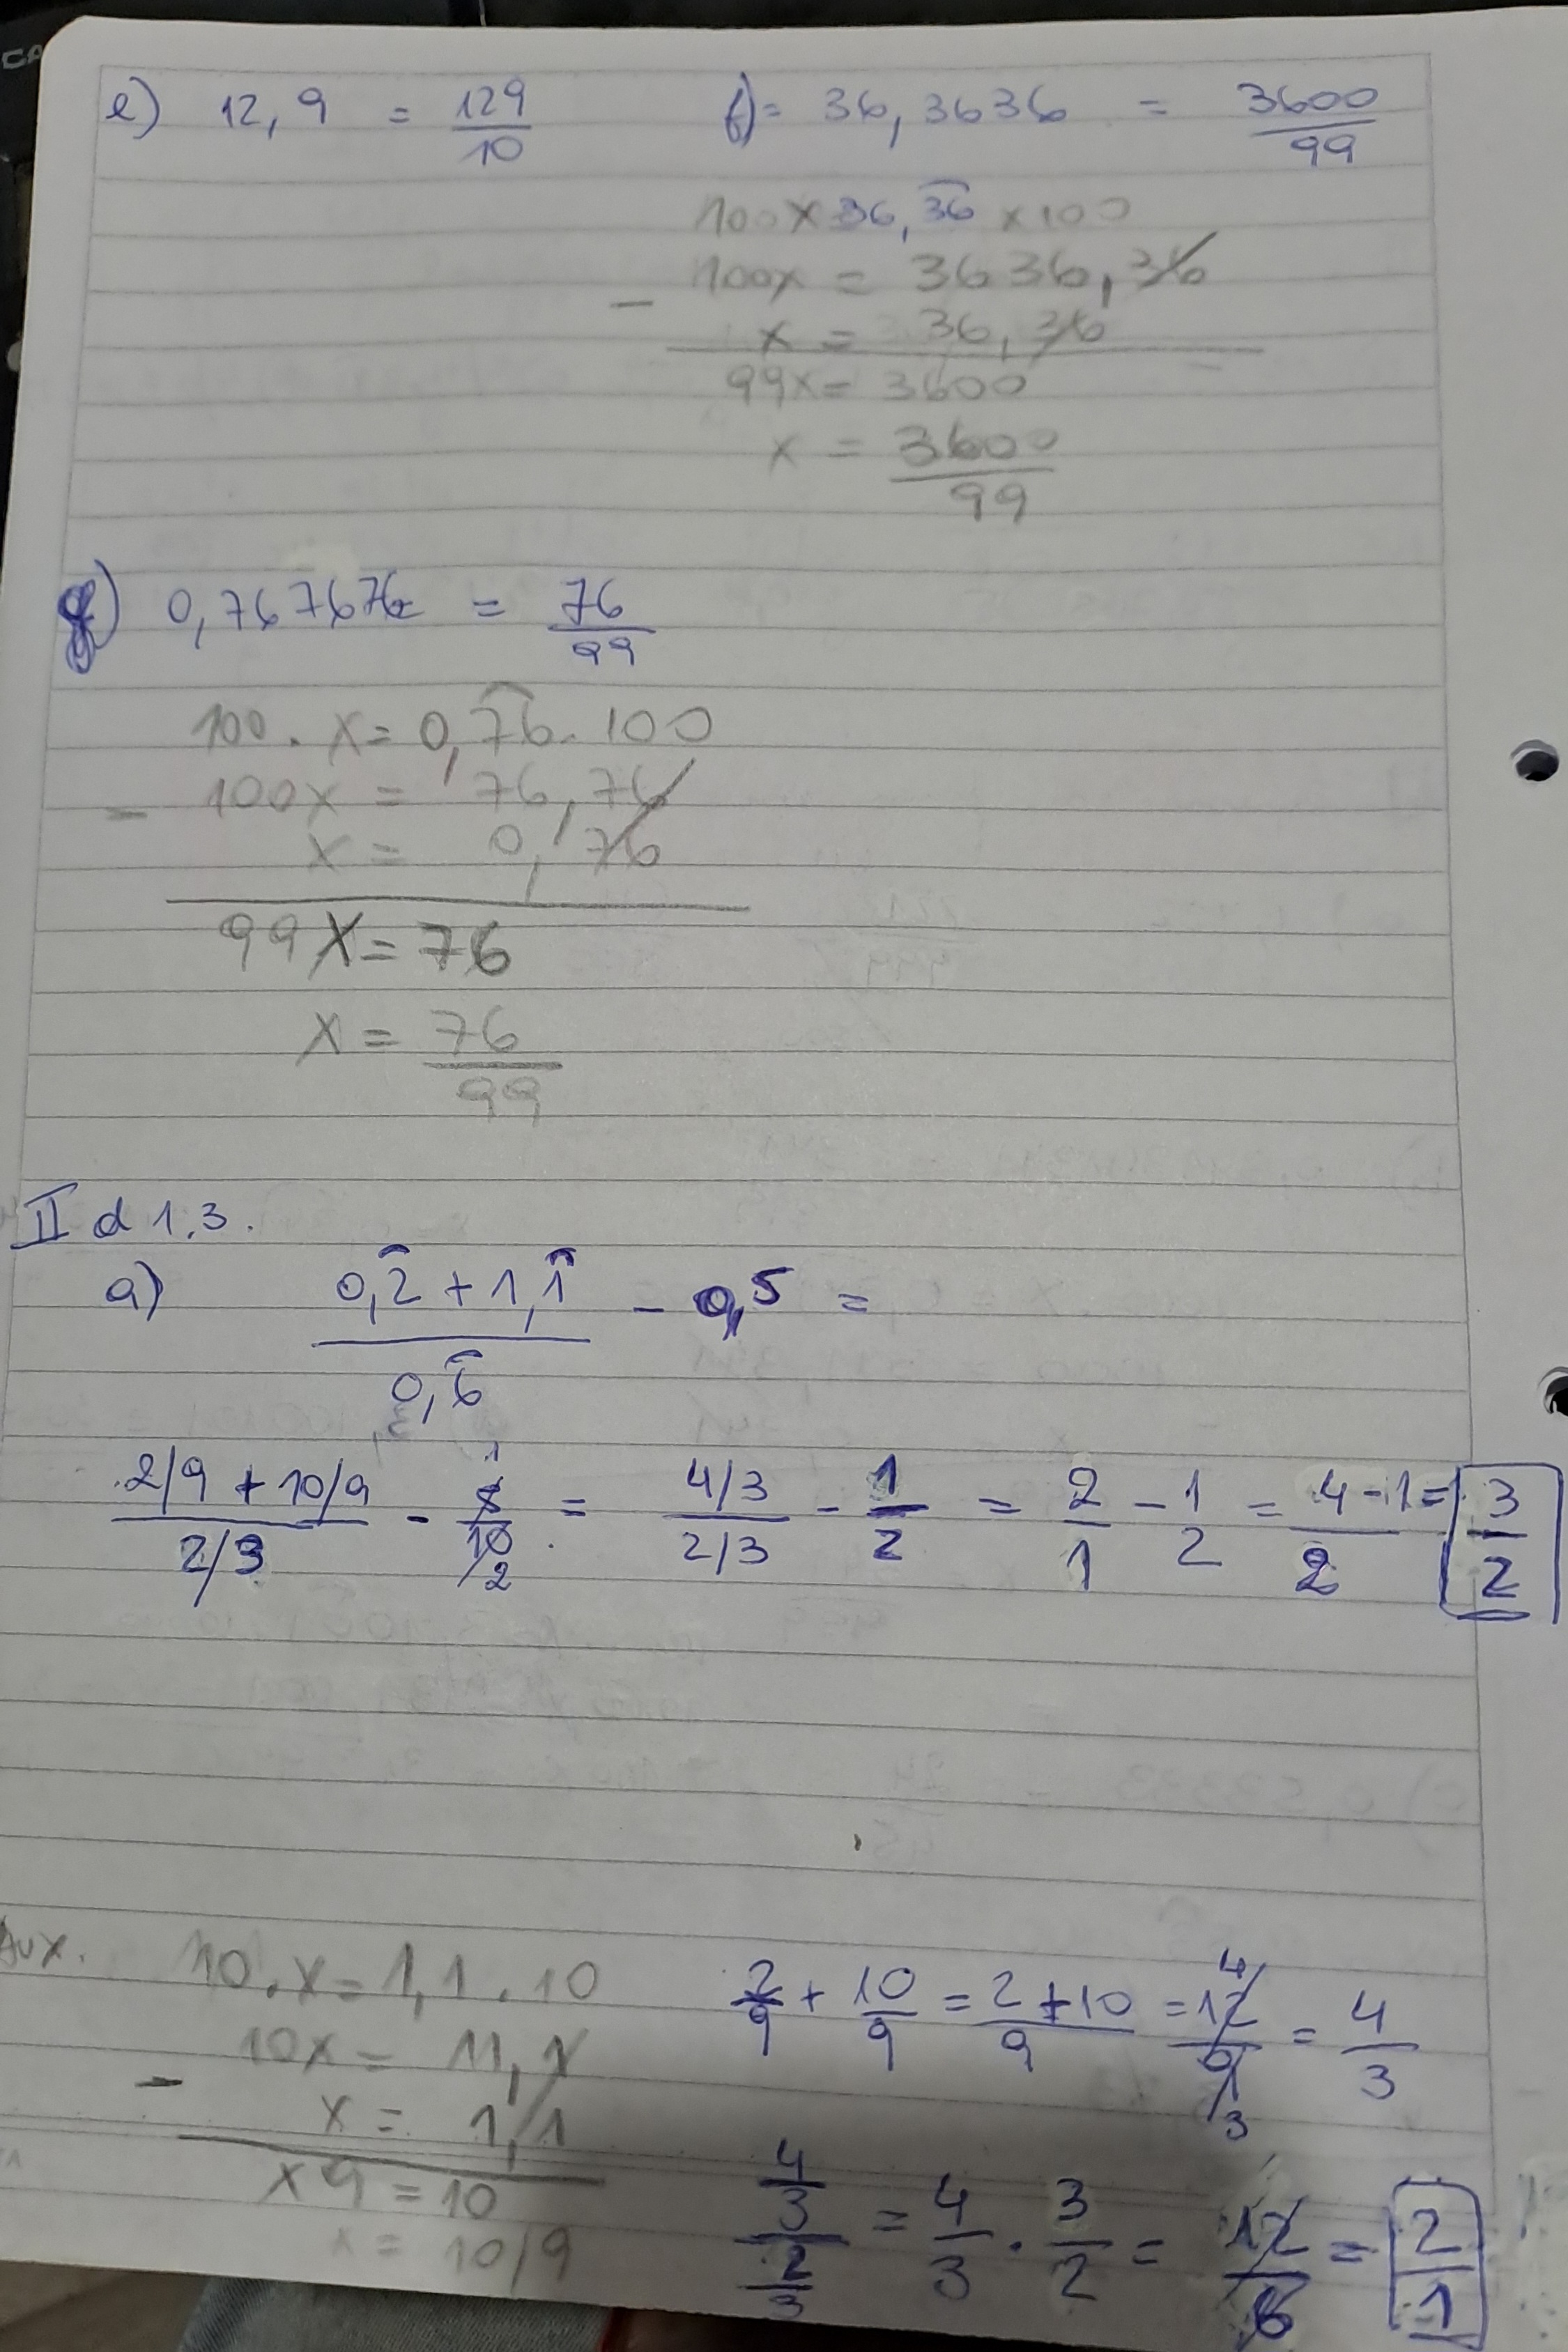 e) 12,9 = 129/10
f) = 36,3636 = 3600/99
100x 36,36 x100
100x = 3636,36
- x = 36,36
99x = 3600
x = 3600/99
g) 0,767676 = 76/99
100 . x = 0,76 . 100
- 100x = 76,76
x = 0,76
99x = 76
x = 76/99
II d 1.3.
a) (0,2 + 1,1)/0,6 - 0,5 =
(2/9 + 10/9)/(2/3) - 5/10 = (4/3)/(2/3) - 1/2 = 2/1 - 1/2 = (4-1)/2 = 3/2
AUX. 10 . x = 1,1 . 10
10x = 11,1
- x = 1,1
x9 = 10
x = 10/9
2/9 + 10/9 = (2+10)/9 = 12/9 = 4/3
(4/3)/(2/3) = 4/3 . 3/2 = 12/6 = 2/1